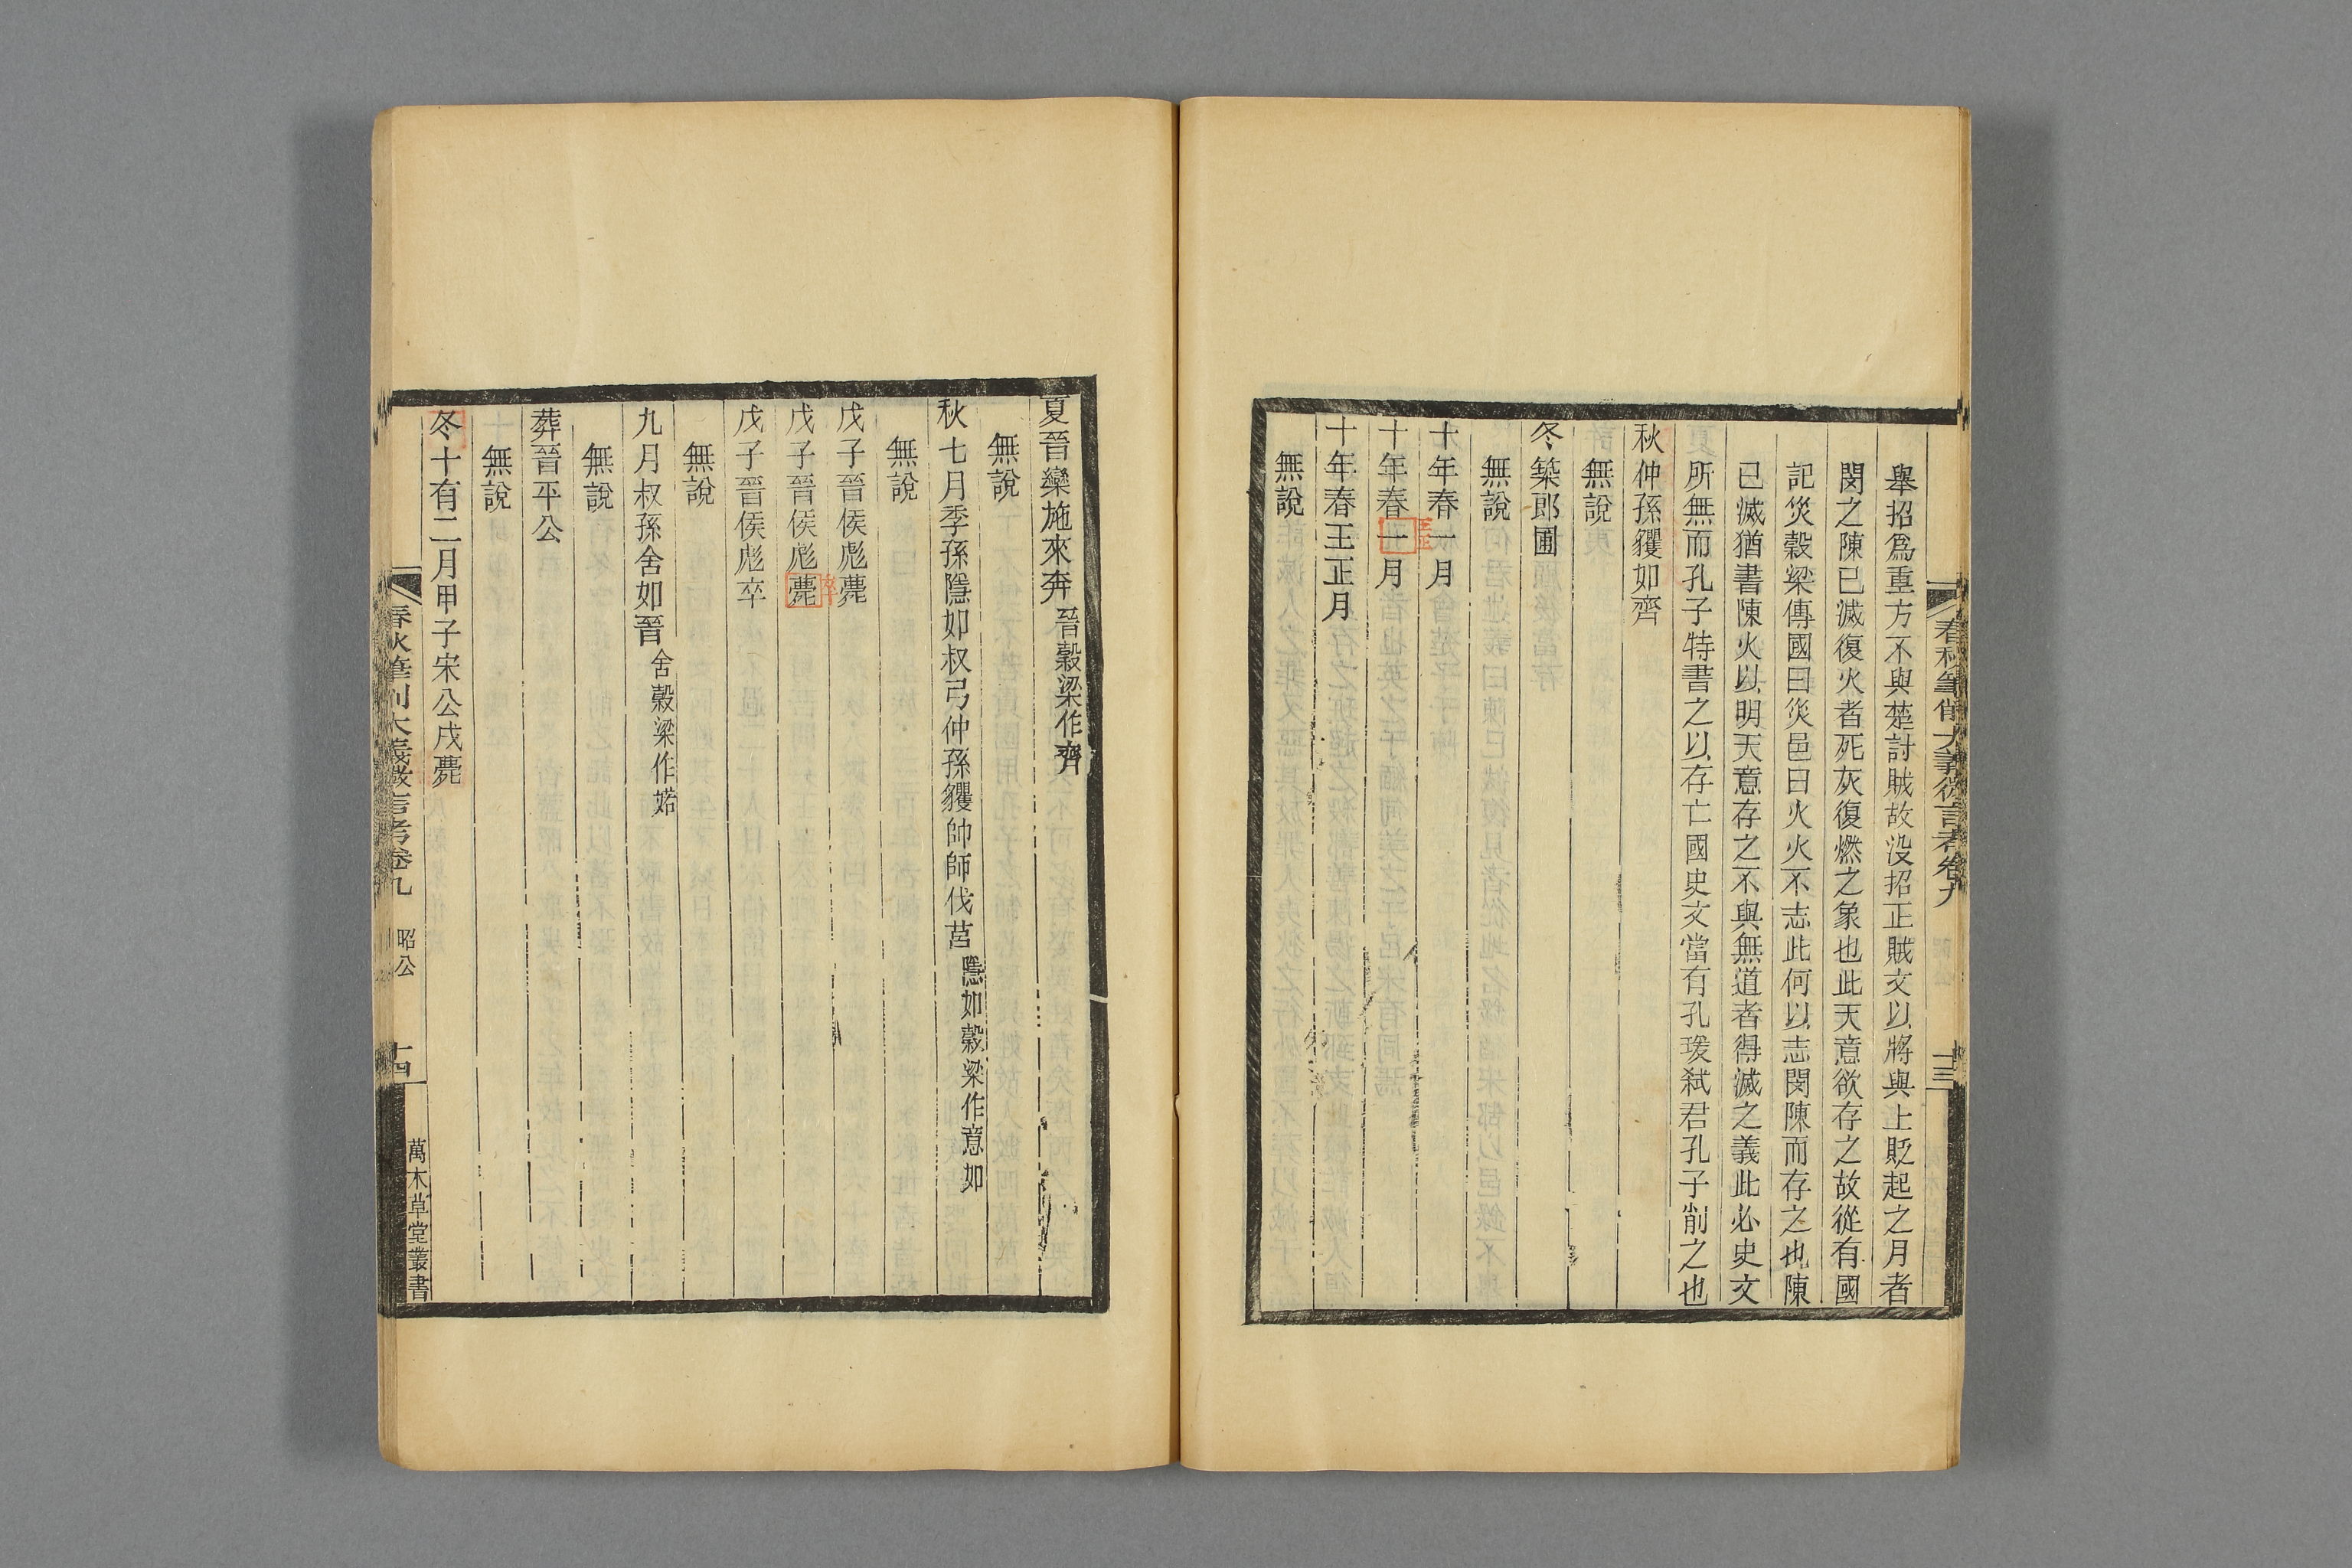 舉招爲重方不與楚討賊故没招正賊文以將與上貶起之月者
閔之陳已滅復火者死灰復燃之象也此天意欲存之故從有國
記災穀梁傳國曰災邑曰火火不志此何以志閔陳而存之也陳
已滅猶書陳火以明天意存之不與無道者得滅之義此必史文
所無而孔子特書之以存亡國史文當有孔瑗弑君孔子削之也
秋仲孫貜如齊
無說
冬築郎囿
無說
十年春一月
十年春一月
王正
十年春王正月
無說
春秋筆削大義微言考卷九
十三
夏晉欒施來奔晉穀梁作齊
無說
秋七月季孫隱如叔弓仲孫貜帥師伐莒隱如穀梁作意如
無說
戊子晉侯彪薨
戊子晉侯彪薨
卒
戊子晉侯彪卒
無說
九月叔孫舍如晉舍穀梁作婼
無說
葬晉平公
無說
冬十有二月甲子宋公戌薨
春秋筆削大義微言考卷九
昭公
十四
萬木草堂叢書